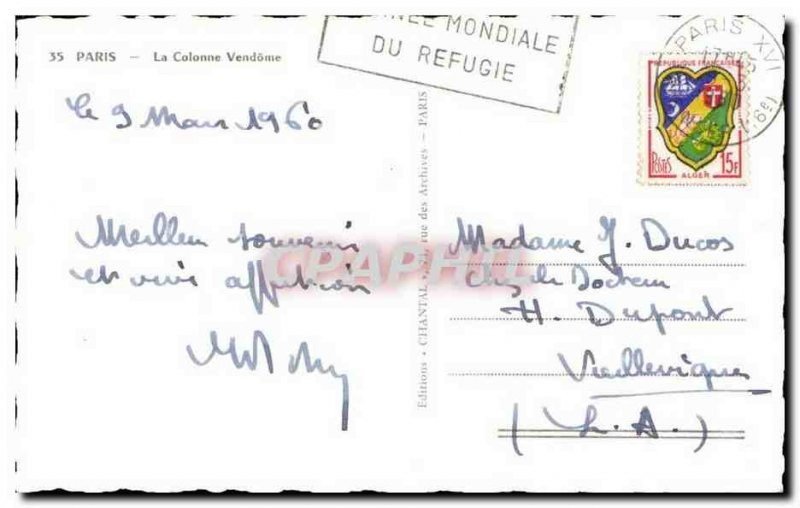 35 PARIS — La Colonne Vendôme
MONDIALE
DU REFUGIE
PARIS XVI
REPUBLIQUE FRANÇAISE
POSTES
ALGER
15F
le 9 Mars 1960
Meilleur souvenir
et vive affection
Madame J. Ducos
Chez le Docteur
H. Dupont
Vieillevigne
(L. A.)
Editions • CHANTAL • 74, rue des Archives — PARIS
CPAPHIL.COM